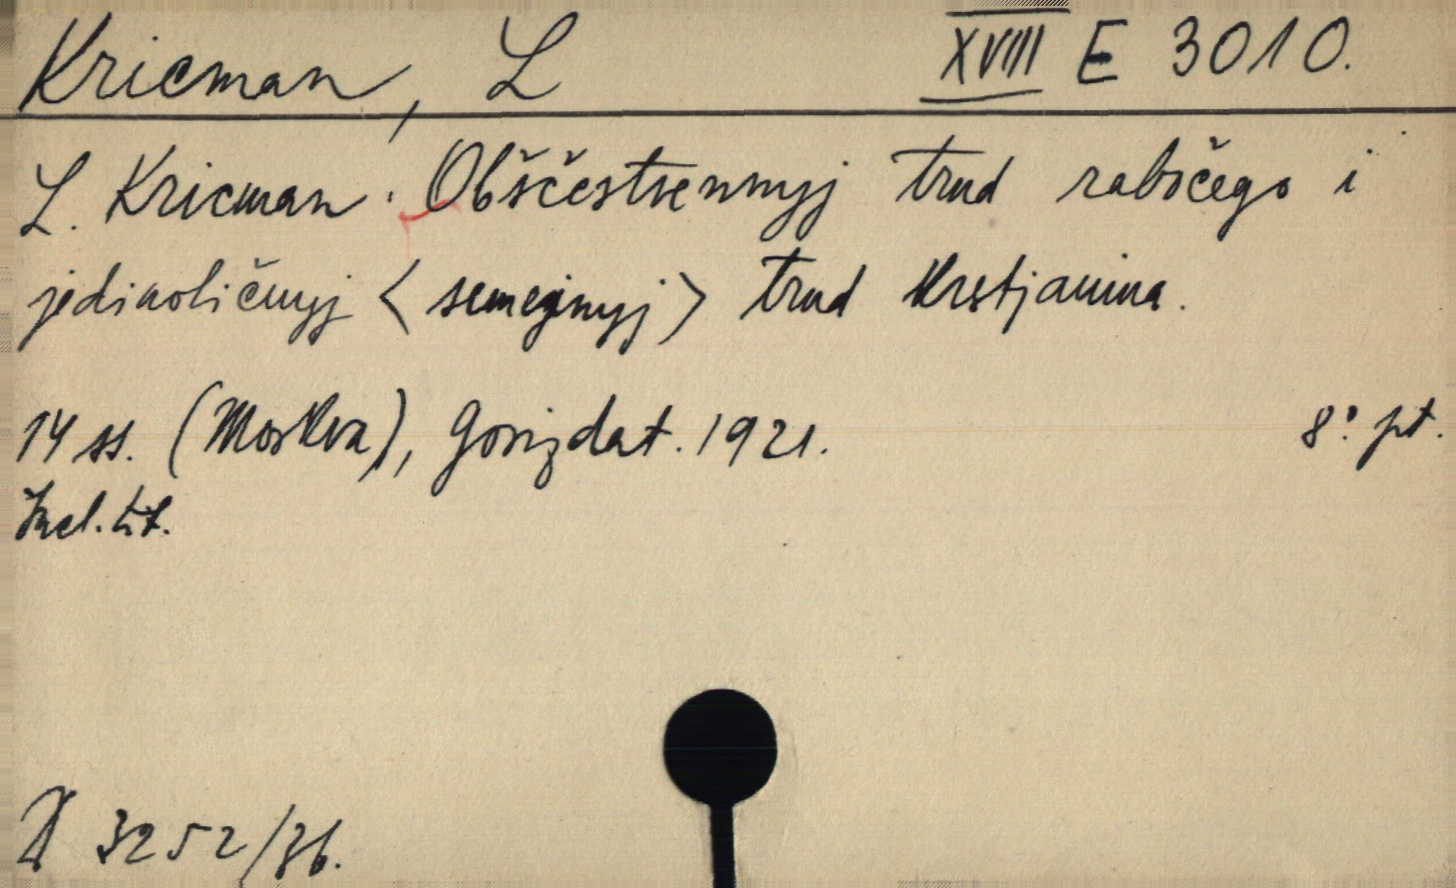 Kricman, L XVIII E 3010.
L. Kricman. Obščestvennyj trud rabočego i
jedinoličnyj < semejnyj > trud krestjanina.
14 ss. (Moskva), Gosizdat. 1921. 8° pt.
tit.
3252/36.